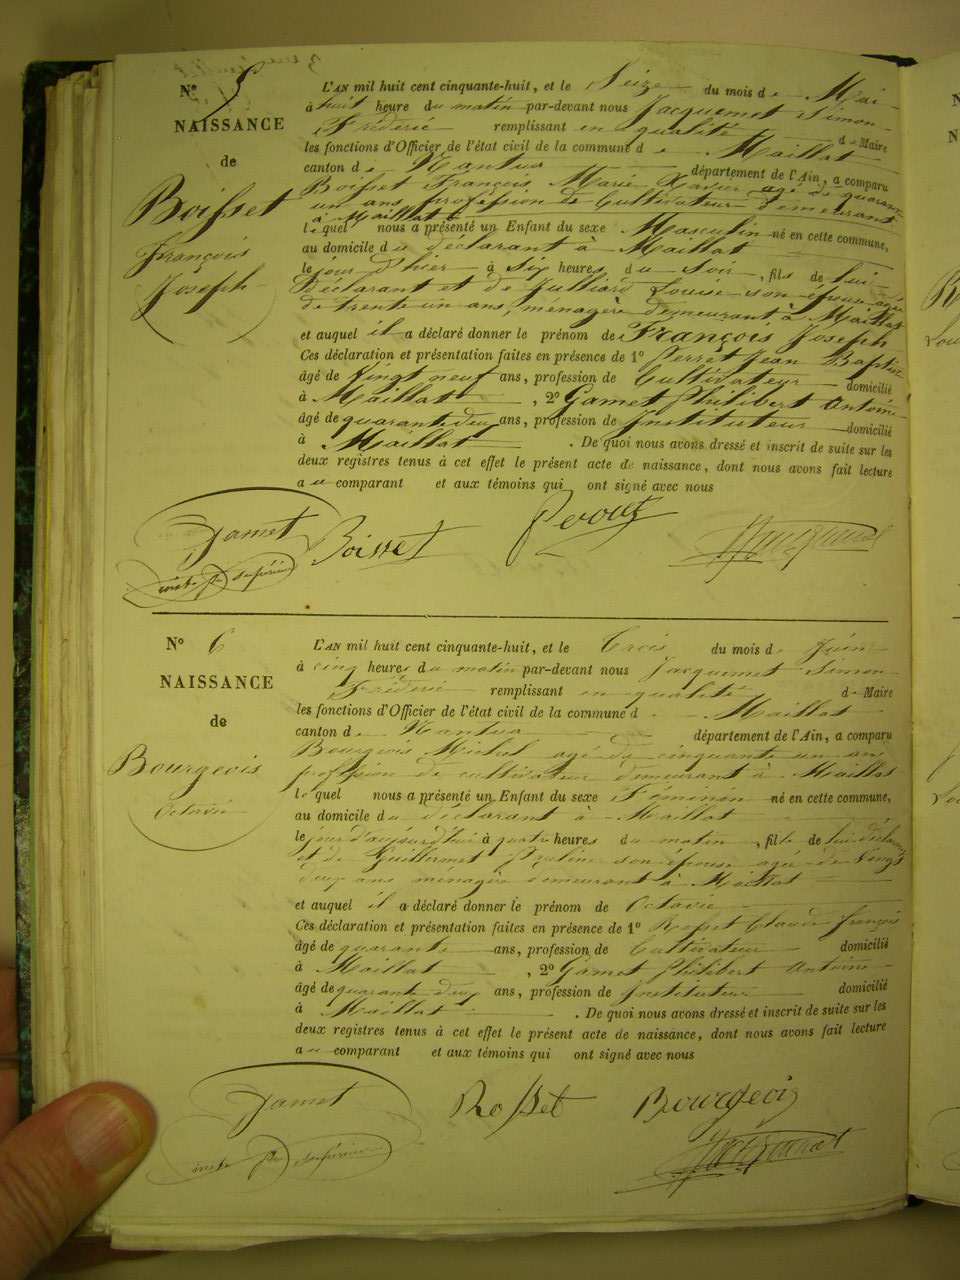 N° 5
NAISSANCE
de
Boisset
François
Joseph
L'AN mil huit cent cinquante-huit, et le Seize du mois de Mai
à huit heure du matin par-devant nous Jacquemet Simon
Fréderic remplissant en qualité de Maire
les fonctions d'Officier de l'état civil de la commune de Maillat
canton de Nantua département de l'Ain, a comparu
Boisset François Marie Xavier agé de quarante
un ans profession de Cultivateur demeurant
à Maillat
lequel nous a présenté un Enfant du sexe Masculin né en cette commune,
au domicile du déclarant à Maillat
le jour d'hier à six heures du soir, fils de lui
déclarant et de Julliard Louise son épouse agée
de trente un ans, ménagère demeurant à Maillat
et auquel il a déclaré donner le prénom de François Joseph
Ces déclaration et présentation faites en présence de 1° Perret Jean Baptiste
âgé de Vingt neuf ans, profession de Cultivateur domicilié
à Maillat, 2° Gamet Philibert Antoine
âgé de quarante deux ans, profession de Instituteur domicilié
à Maillat. De quoi nous avons dressé et inscrit de suite sur les
deux registres tenus à cet effet le présent acte de naissance, dont nous avons fait lecture
au comparant et aux témoins qui ont signé avec nous
Gamet Boisset Perret Jacquemet
N° 6
NAISSANCE
de
Bourgeois
Octavie
L'AN mil huit cent cinquante-huit, et le Trois du mois de Juin
à cinq heures du matin par-devant nous Jacquemet Simon
Fréderic remplissant en qualité de Maire
les fonctions d'Officier de l'état civil de la commune d Maillat
canton de Nantua département de l'Ain, a comparu
Bourgeois Michel agé de cinquante un ans
profession de cultivateur demeurant à Maillat
lequel nous a présenté un Enfant du sexe Féminin né en cette commune,
au domicile du déclarant à Maillat
le jour d'aujourd'hui à quatre heures du matin, fille de lui déclarant
et de Guillermet son épouse agée de Vingt
deux ans ménagère demeurant à Maillat
et auquel il a déclaré donner le prénom de Octavie
Ces déclaration et présentation faites en présence de 1° Rosset Claude François
âgé de quarante ans, profession de Cultivateur domicilié
à Maillat, 2° Gamet Philibert Antoine
âgé de quarante deux ans, profession de Instituteur domicilié
à Maillat. De quoi nous avons dressé et inscrit de suite sur les
deux registres tenus à cet effet le présent acte de naissance, dont nous avons fait lecture
au comparant et aux témoins qui ont signé avec nous
Gamet Rosset Bourgeois
Jacquemet